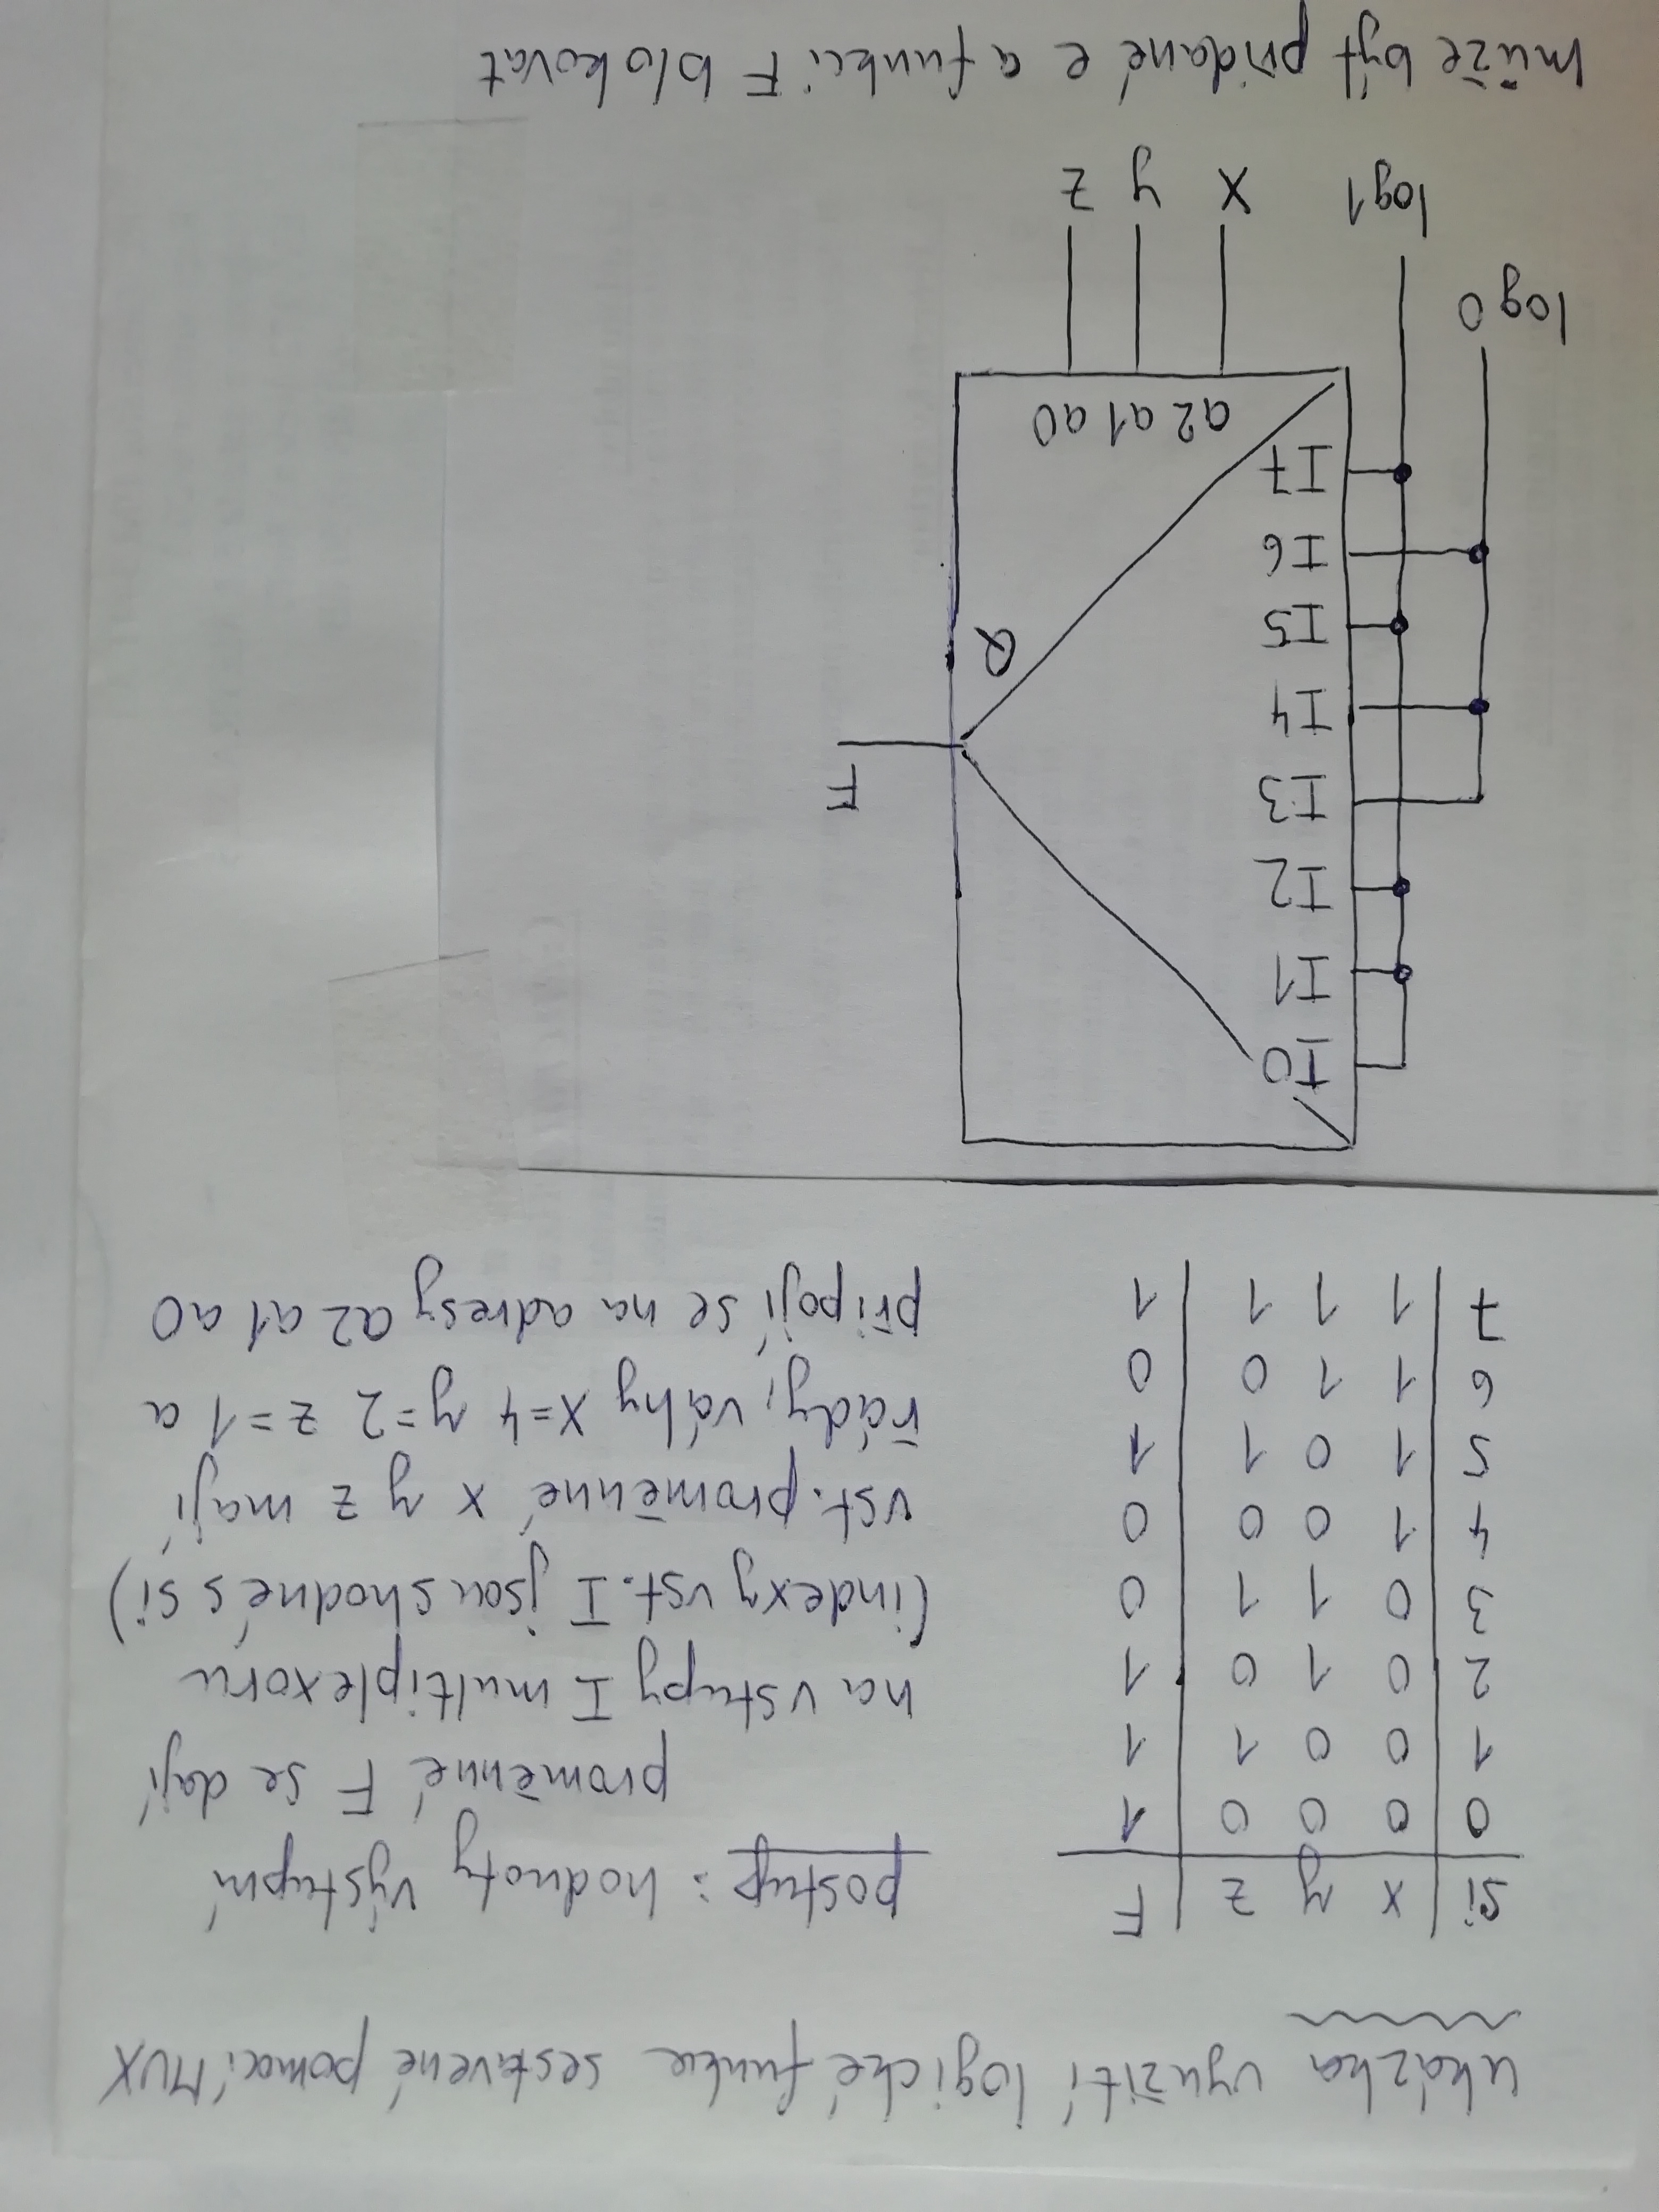 ukázka využití logické funkce sestavené pomocí MUX
si x y z F
0 0 0 0 1
1 0 0 1 1
2 0 1 0 1
3 0 1 1 0
4 1 0 0 0
5 1 0 1 1
6 1 1 0 0
7 1 1 1 1
postup: hodnoty výstupní
proměnné F se dají
na vstupy I multiplexoru
(indexy vst. I jsou shodné s si)
vst. proměnné x y z mají
řády, váhy x=4 y=2 z=1 a
připojí se na adresy a2 a1 a0
I0
I1
I2
I3
F
I4
Q
I5
I6
I7
a2 a1 a0
log0
log1 x y z
může být přidané e a funkci F blokovat